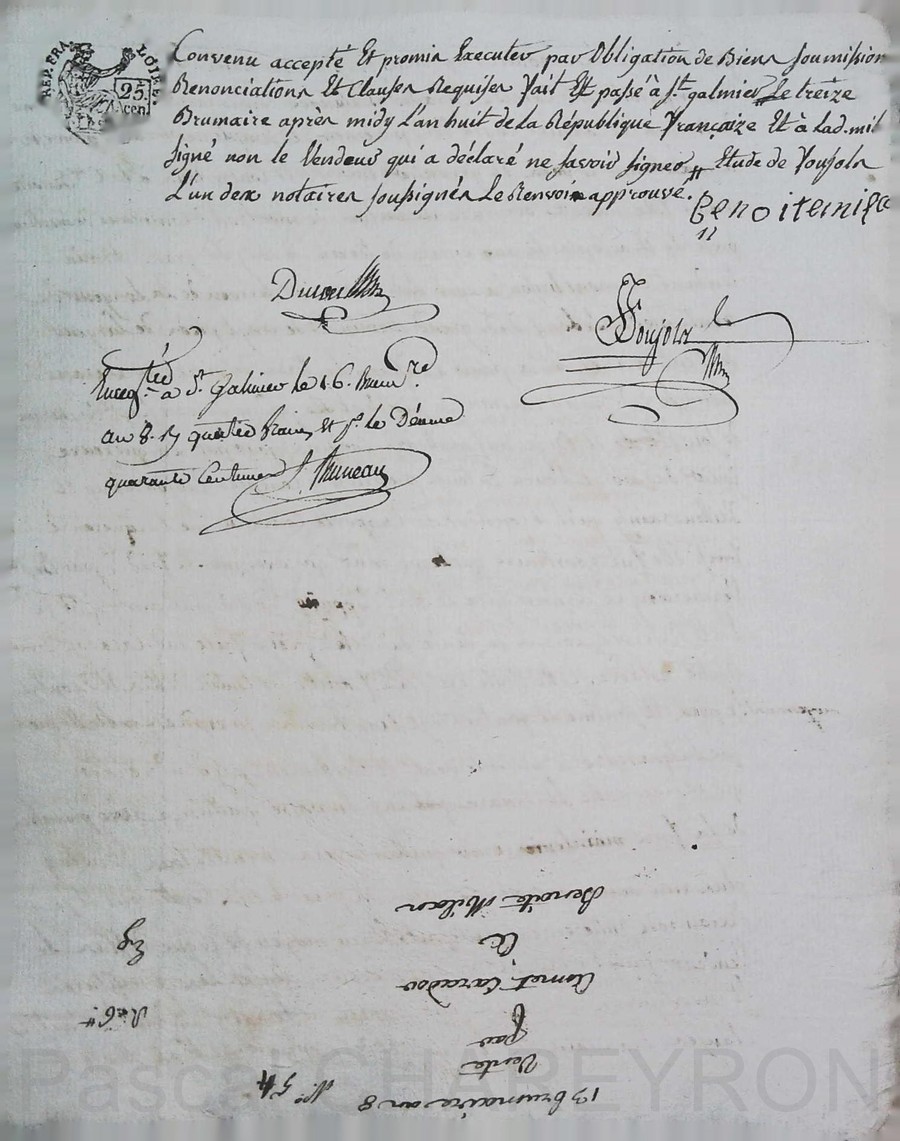 REP. FRA. LOIRE.
25
Cen
Convenu accepté Et promis Executer par Obligation de Biens soumission
Renonciations Et Clauses Requises fait Et passé à St galmier Le treize
Brumaire après midy L'an huit de la République françaize Et à lad. mil
signé non le Vendeur qui a déclaré ne savoir signer Etude de Poujols
L'un des notaires soussignés Le Renvoi approuvé.
Benoitemila
Poujols
Enregtré à St. Galmier le 16. Brumre.
an 8. quatre francs et pr. le Dixme
quarante Centimes Bruneau
13 brumaire an 8 No. 54
Vente
par
Camet, Caradou
à
Benoite Milaon
Pascal CHAREYRON